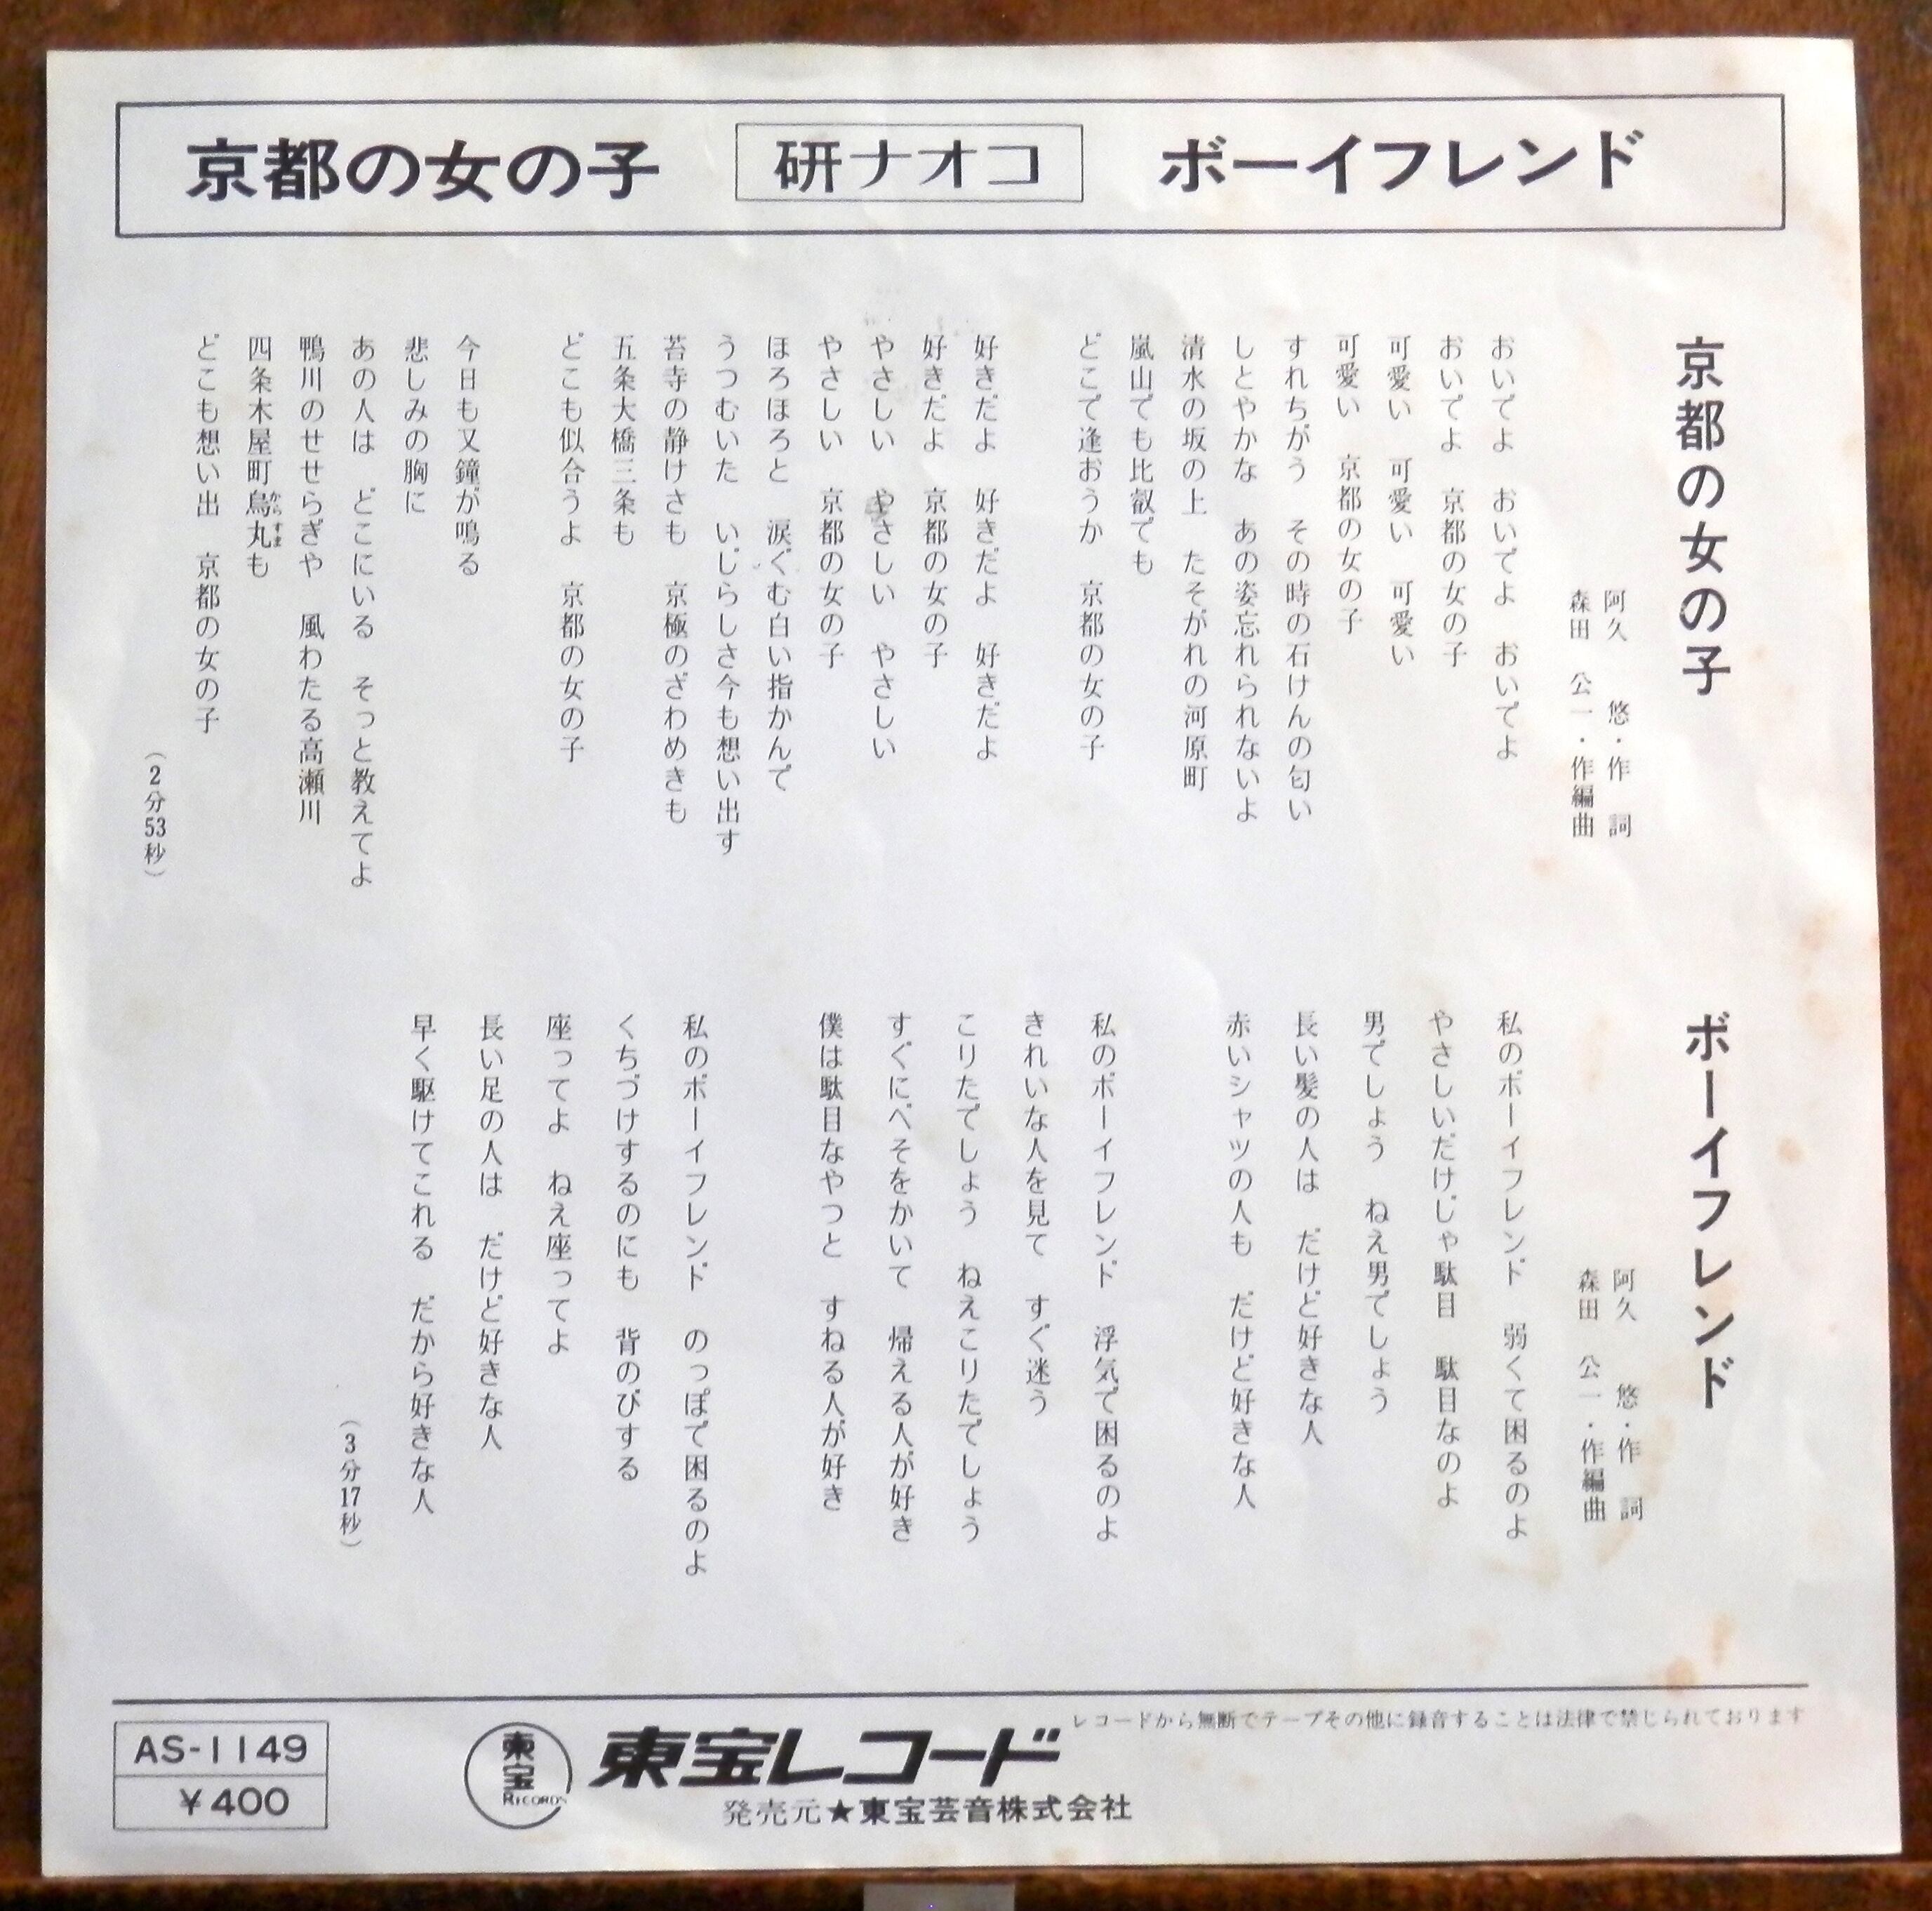 京都の女の子 研ナオコ ボーイフレンド
京都の女の子
阿久 悠・作 詞
森田 公一・作編曲
おいでよ おいでよ おいでよ
おいでよ 京都の女の子
可愛い 可愛い 可愛い
可愛い 京都の女の子
すれちがう その時の石けんの匂い
しとやかな あの姿忘れられないよ
清水の坂の上 たそがれの河原町
嵐山でも比叡でも
どこで逢おうか 京都の女の子
好きだよ 好きだよ 好きだよ
好きだよ 京都の女の子
やさしい やさしい やさしい
やさしい 京都の女の子
ほろほろと 涙ぐむ白い指かんで
うつむいた いじらしさ今も想い出す
苔寺の静けさも 京極のざわめきも
五条大橋三条も
どこも似合うよ 京都の女の子
今日も又鐘が鳴る
悲しみの胸に
あの人は どこにいる そっと教えてよ
鴨川のせせらぎや 風わたる高瀬川
四条木屋町烏丸も
からすま
どこも想い出 京都の女の子
（2分53秒）
ボーイフレンド
阿久 悠・作 詞
森田 公一・作編曲
私のボーイフレンド 弱くて困るのよ
やさしいだけじゃ駄目 駄目なのよ
男でしょう ねえ男でしょう
長い髪の人は だけど好きな人
赤いシャツの人も だけど好きな人
私のボーイフレンド 浮気で困るのよ
きれいな人を見て すぐ迷う
こりたでしょう ねえこりたでしょう
すぐにべそをかいて 帰える人が好き
僕は駄目なやつと すねる人が好き
私のボーイフレンド のっぽで困るのよ
くちづけするのにも 背のびする
座ってよ ねえ座ってよ
長い足の人は だけど好きな人
早く駆けてこれる だから好きな人
（3分17秒）
レコードから無断でテープその他に録音することは法律で禁じられております
AS-1149
￥400
東宝
RECORDS
東宝レコード
発売元★東宝芸音株式会社